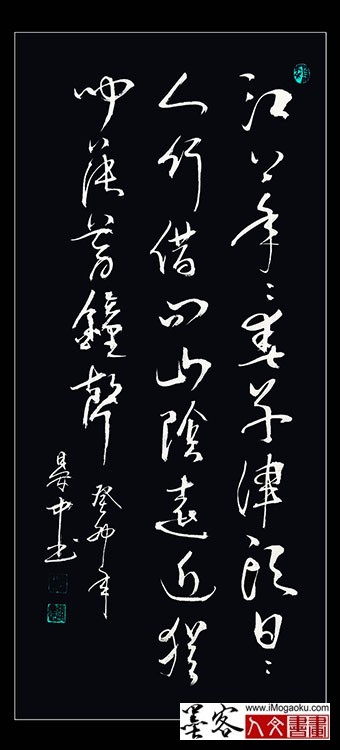 江上年々春早津頭日々
人行借问山陰遠近猶
聞薄暮鐘聲
癸卯年
中书
墨客
www.iMogaoku.com
人文書畫